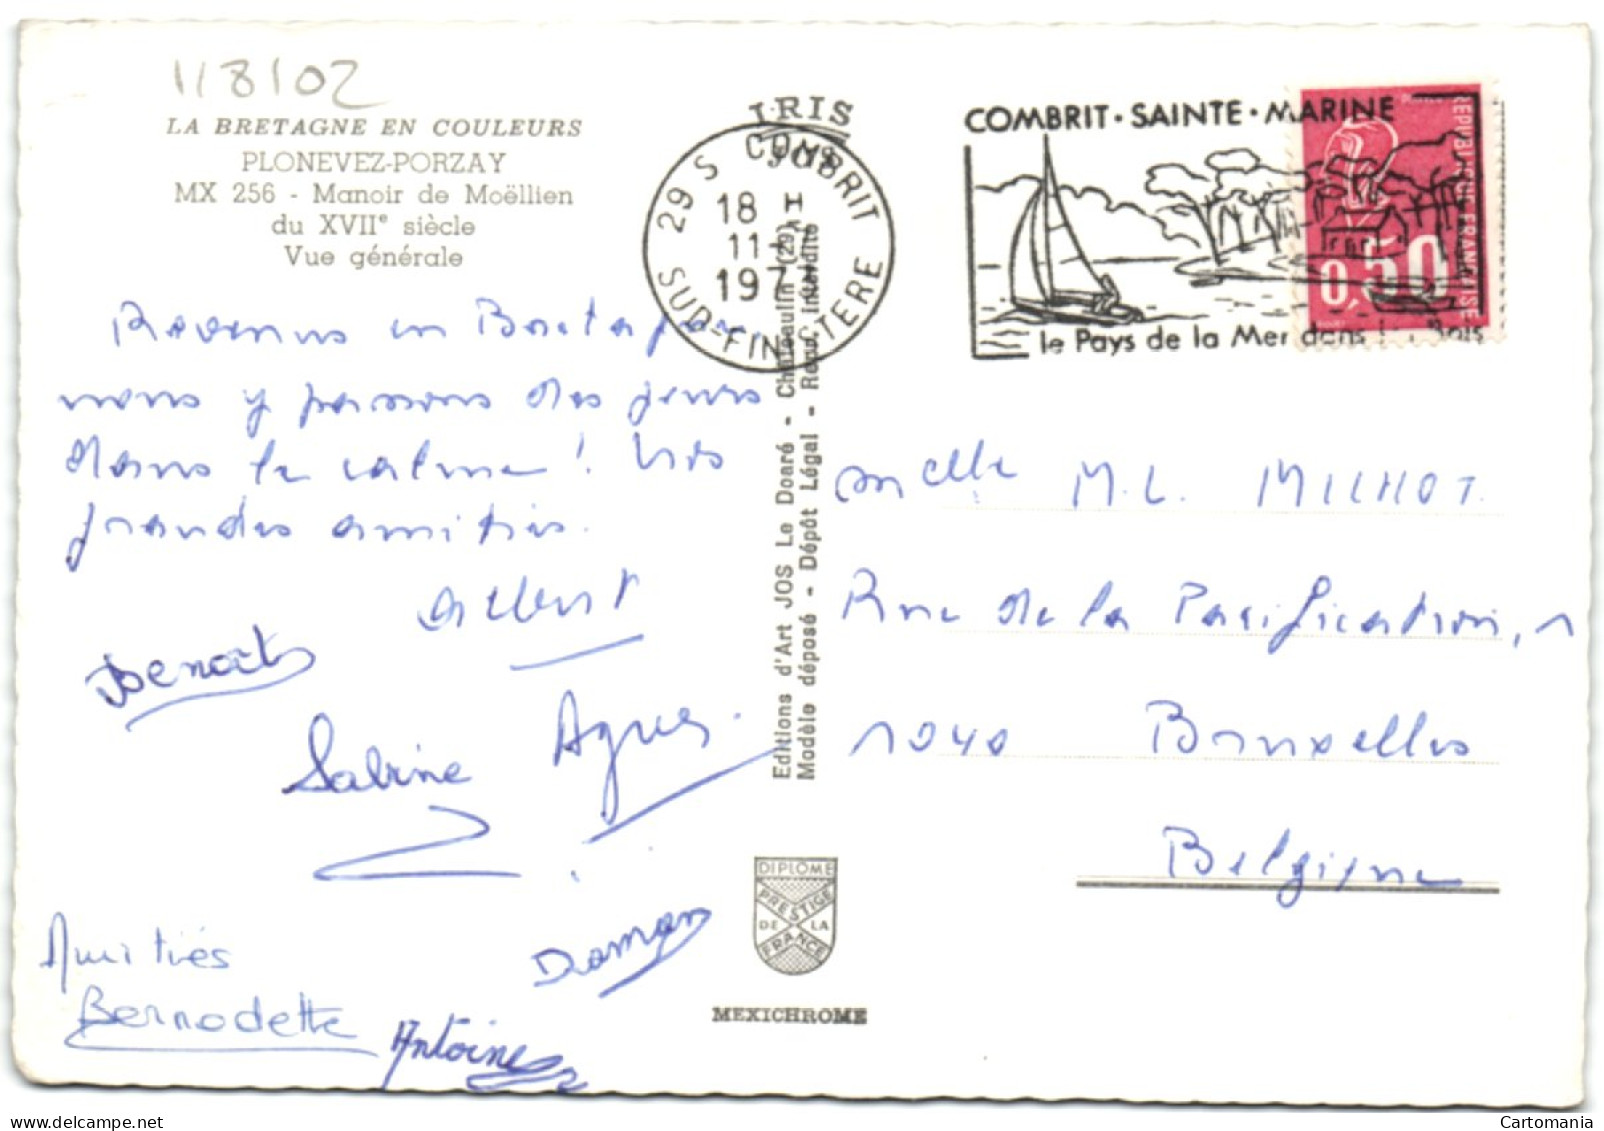 118102
LA BRETAGNE EN COULEURS
PLONEVEZ-PORZAY
MX 256 - Manoir de Moëllien
du XVIIe siècle
Vue générale
Revenus en Bretagne
nous y passons des jours
dans le calme ! Nos
grandes amitiés.
Albert
Benoît
Agnes
Sabine
Daman
Amitiés
Bernadette
Antoine
IRIS
JOS
29 S COMBRIT
18 H
11
197
SUD-FINISTERE
COMBRIT · SAINTE · MARINE
le Pays de la Mer dans Bois
REPUBLIQUE FRANCAISE
0,50
Editions d'Art JOS Le Doaré - Châteaulin (29)
Modèle déposé - Dépôt Légal - Repr. interdite
DIPLOME
PRESTIGE
DE LA
FRANCE
MEXICHROME
Melle M.L. MILHOT.
Rue de la Pacification, 1
1040 Bruxelles
Belgique